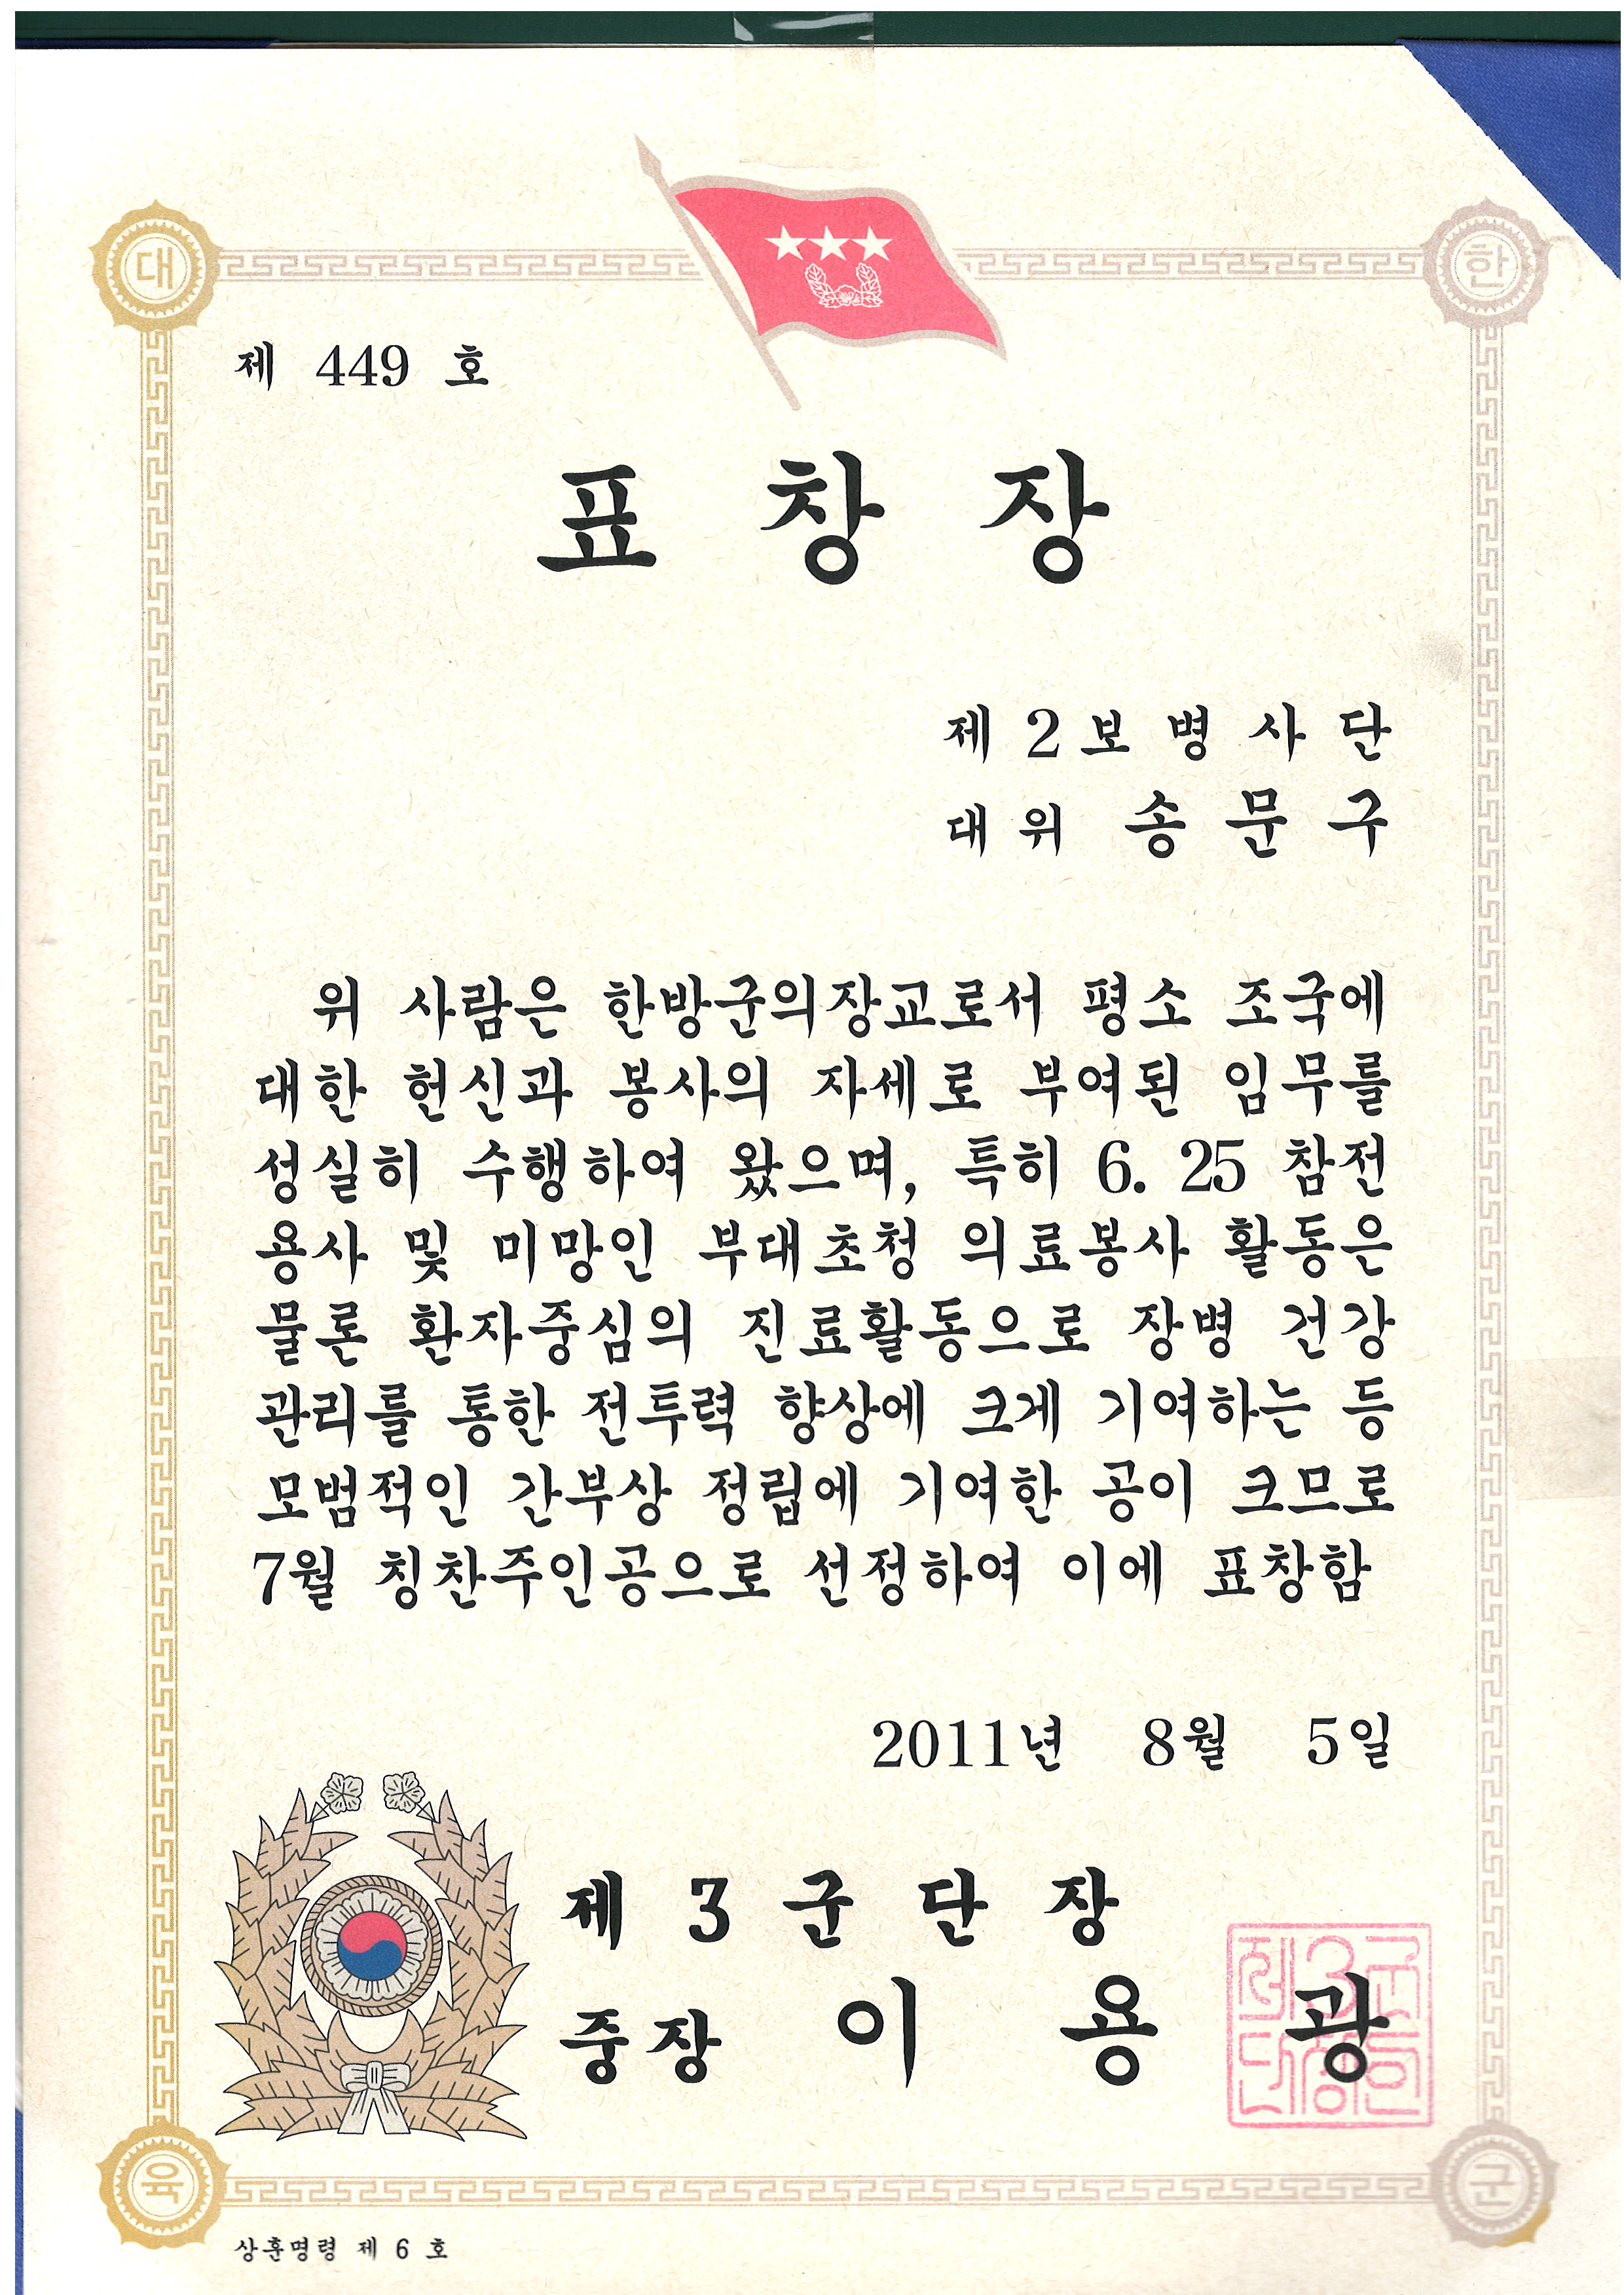 대 한
제 449 호
표 창 장
제 2 보 병 사 단
대 위 송 문 구
위 사람은 한방군의장교로서 평소 조국에
대한 헌신과 봉사의 자세로 부여된 임무를
성실히 수행하여 왔으며, 특히 6. 25 참전
용사 및 미망인 부대초청 의료봉사 활동은
물론 환자중심의 진료활동으로 장병 건강
관리를 통한 전투력 향상에 크게 기여하는 등
모범적인 간부상 정립에 기여한 공이 크므로
7월 칭찬주인공으로 선정하여 이에 표창함
2011년 8월 5일
제 3 군 단 장
중장 이 용 광
제3군
단장
육 군
상훈명령 제 6 호